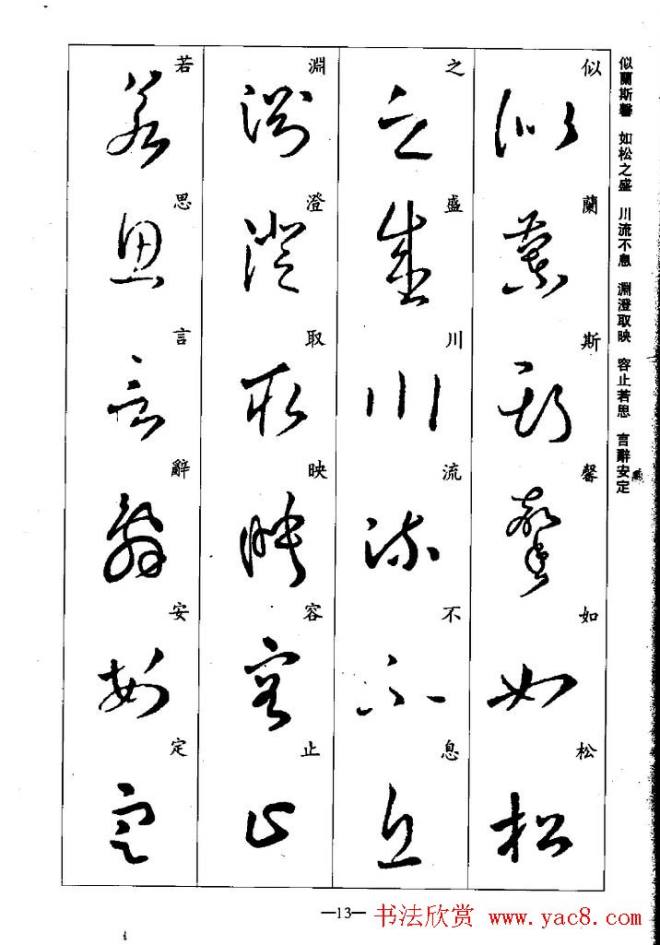 似蘭斯馨 如松之盛 川流不息 淵澄取映 容止若思 言辭安定
似蘭斯馨如松
之盛川流不息
淵澄取映容止
若思言辭安定
—13—
书法欣赏 www.yac8.com